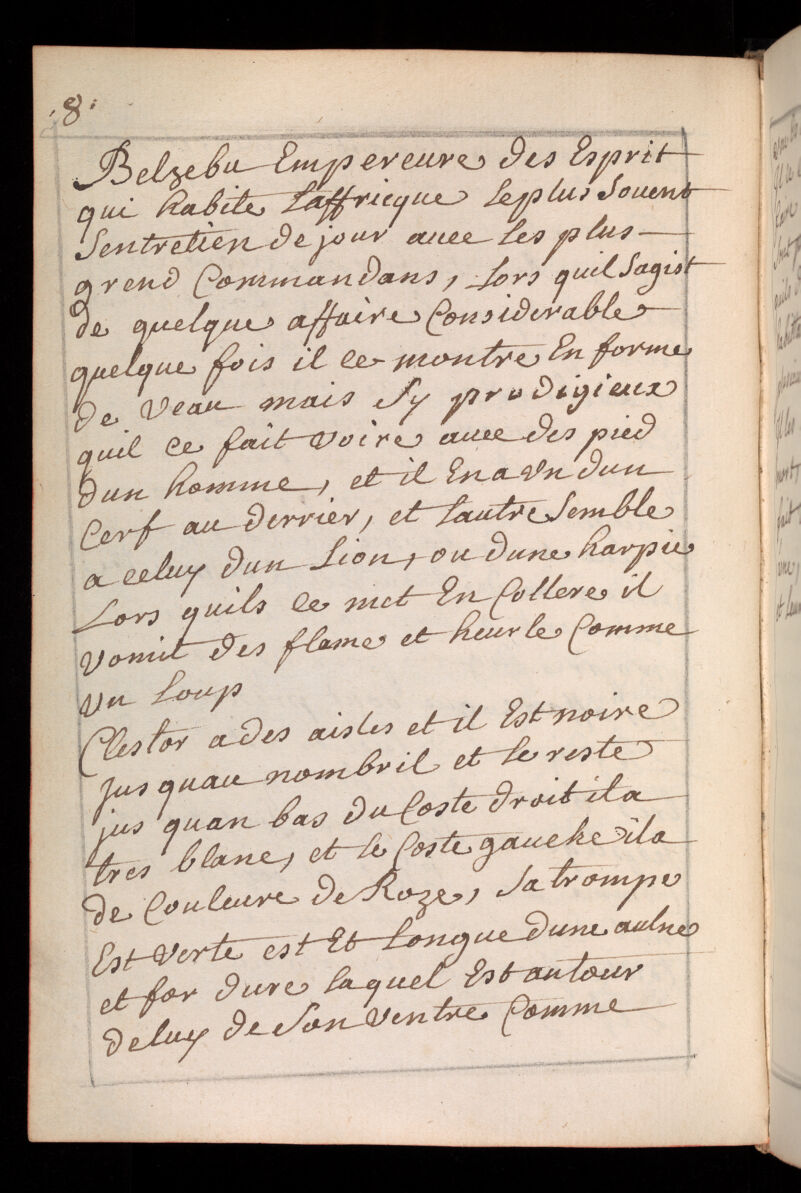 .8.
Belzebu Empereure des Esprit
qui habite Laffricque Le plus Souent
Sentretien de jour auec Les plus
grend Commandans, Lors quil Sagist
de quelque affaire Considerable
quelque fois il ce montre En forme
de Veau mais Sy prodigieux
quil ce fait voire auec des pied
dun homme, et il En a vn dun
Cerf au derrier, et Lautre Semble
a celuy dun Lion, ou dune harpie
Lors quils ce met En Collere il
vomit des flame et heurle Comme
vn Loup
Clestor a des aisles et il Est noire
jus quau nombril et Le reste
jus quan bas du Coste droit il a
tres blanc, et Le Coste gauche il a
de Couleure de Roze, Sa trompe
Est verte est Et Longue dune aulne
et for dure Laquel Est autour
de luy de Son ventre Comme